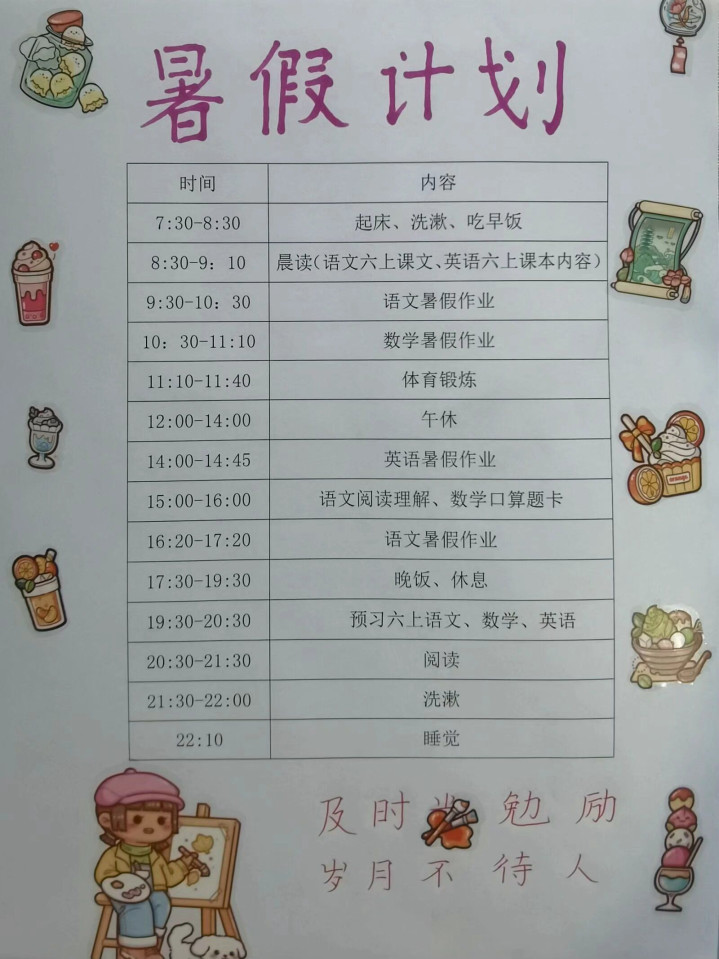 暑假计划
时间 内容
7:30-8:30 起床、洗漱、吃早饭
8:30-9：10 晨读（语文六上课文、英语六上课本内容）
9:30-10：30 语文暑假作业
10：30-11:10 数学暑假作业
11:10-11:40 体育锻炼
12:00-14:00 午休
14:00-14:45 英语暑假作业
15:00-16:00 语文阅读理解、数学口算题卡
16:20-17:20 语文暑假作业
17:30-19:30 晚饭、休息
19:30-20:30 预习六上语文、数学、英语
20:30-21:30 阅读
21:30-22:00 洗漱
22:10 睡觉
及时 勉励
岁月不待人
orange